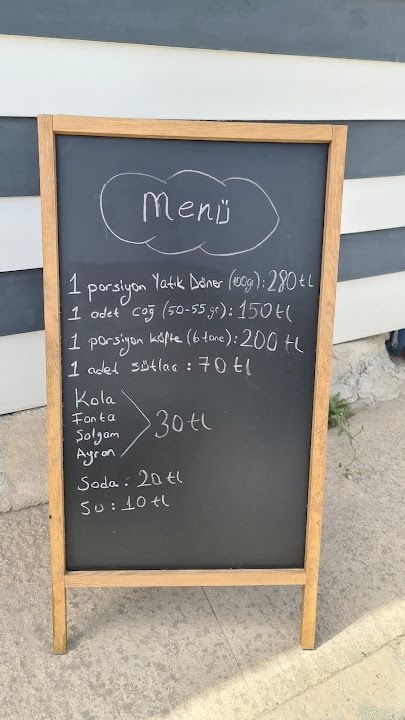 Menü
1 porsiyon Yatık Döner (100gr): 280 tl
1 adet Cağ (50-55 gr): 150 tl
1 porsiyon köfte (6 tane): 200 tl
1 adet sütlaç : 70 tl
Kola
Fanta
Şalgam
Ayran
30 tl
Soda : 20 tl
Su : 10 tl